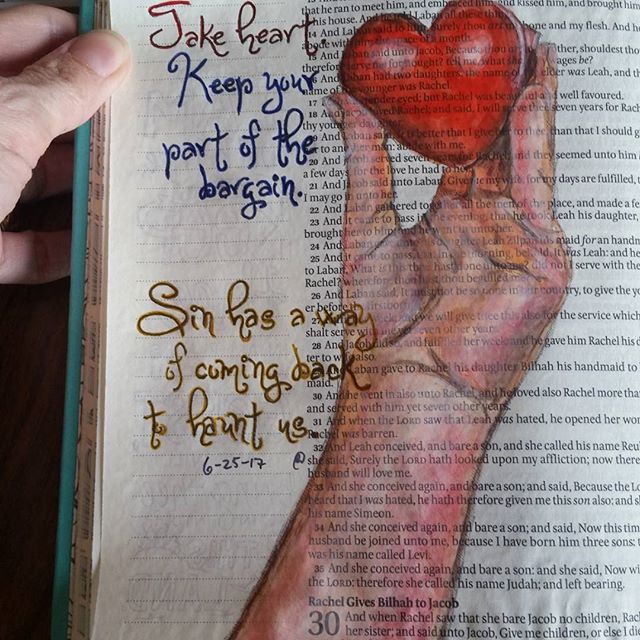 Take heart
Keep your
part of the
bargain.
Sin has a way
of coming back
to haunt us.
6-25-17 @
that he ran to meet him, and embraced him and kissed him, and brought him
his house. And
And Laban said
bone and my flesh. And he
abode with
a month.
15 And Laban said unto Jacob, Because
ther, shouldest tho
therefore serve me for nought?
ages be?
16 And Laban had two daughters: the name
der was Leah, and t
name of the younger was Rachel.
17
tender eyed; but Rachel was
well favoured.
18 And
Rachel; and said, I will serve thee seven years for Rac
thy younger daughter.
19 And Laban said,
better that I give
than that I should g
to another man: abide with me.
20 And Jacob served seven
they seemed unto him
a few days, for the love he had to her.
21 And Jacob said unto Laban, Give
my days are fulfilled, t
I may go in unto her.
22 And Laban gathered together
the place, and made a fe
23 And it came to pass in the evening, that he took Leah his daughter,
brought her to him;
24 And Laban
Zilpah his maid for an hand
25 And it came to pass,
it was Leah: and he
to Laban, What is this thou hast done unto me? did not I serve with thee
Rachel? wherefore then hast thou beguiled me?
26 And Laban said, It must not be so done in our country, to give the yo
er before the firstborn.
27
we will give thee this also for the service which
shalt serve with
seven other years.
28 And Jacob did so, and fulfilled her week: and he gave him Rachel his d
ter to wife also.
29 And Laban gave to Rachel his daughter Bilhah his handmaid to
maid.
30 And he went in also unto Rachel, and he loved also Rachel more tha
and served with him yet seven other years.
31 And when the LORD saw that Leah was hated, he opened her wor
Rachel was barren.
32 And Leah conceived, and bare a son, and she called his name Reu
she said, Surely the LORD hath looked upon my affliction; now there
husband will love me.
33 And she conceived again, and bare a son; and said, Because the Lo
heard that I was hated, he hath therefore given me this son also: and sh
his name Simeon.
34 And she conceived again, and bare a son; and said, Now this tim
husband be joined unto me, because I have born him three sons: t
was his name called Levi.
35 And she conceived again, and bare a son: and she said, Now wi
the LORD: therefore she called his name Judah; and left bearing.
Rachel Gives Bilhah to Jacob
30 And when Rachel saw that she bare Jacob no children, Rac
her sister; and said unto Jacob, Give me children, or else I die